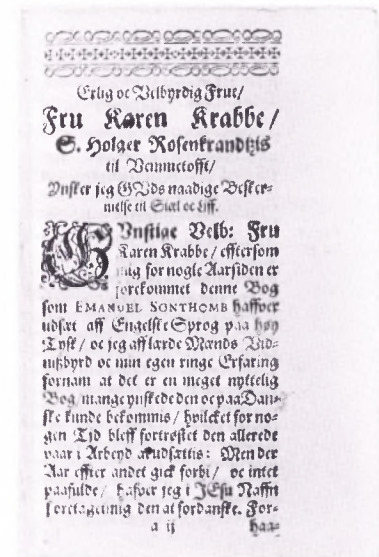 Erlig oc Velbyrdig Frue/
Fru Karen Krabbe/
S. Holger Rosenkrandtzis
til Vemmetofft/
Ynsker jeg GUds naadige Besker-
melse til Siæl oc Liff.
GUnstige Velb: Fru
Karen Krabbe/ efftersom
mig for nogle Aar siden er
forekommet denne Bog
som EMANUEL SONTHOMB haffver
udsæt aff Engelske Sprog paa høy
Tysk/ oc jeg aff lærde Mænds Vid-
nißbyrd oc min egen ringe Erfaring
fornam at det er en meget nyttelig
Bog, mange ynskede den oc paa Dan-
ske kunde bekommis/ hvilcket for no-
gen Tjd bleff fortrøstet den allerede
vaar i Arbeyd at udsættis: Men der
Aar effter andet gick forbi/ oc intet
paafulde/ hafver jeg i JEsu Naffn
foretaget mig den at fordanske. For-
a ij
haa-